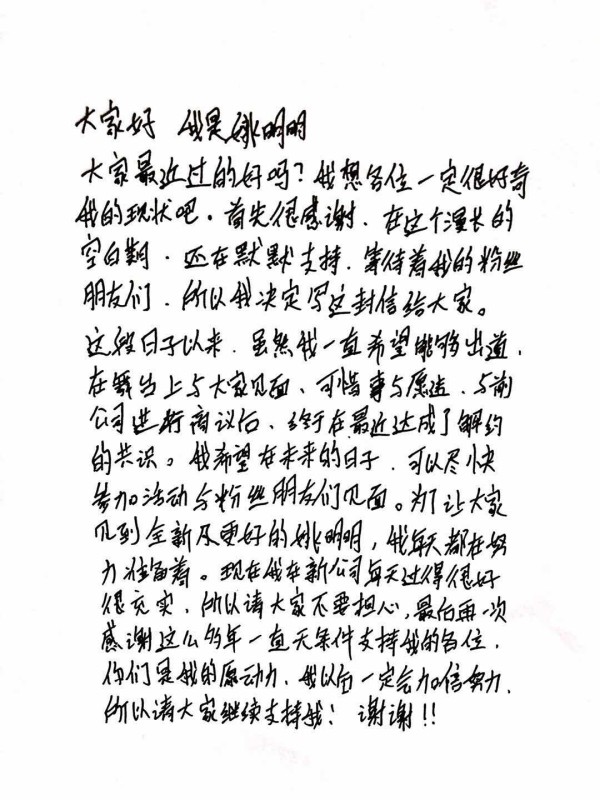 大家好 我是姚明明
大家最近过的好吗？我想各位一定很好奇
我的现状吧。首先很感谢、在这个漫长的
空白期、还在默默支持、等待着我的粉丝
朋友们、所以我决定写这封信给大家。
这段日子以来、虽然我一直希望能够出道、
在舞台上与大家见面、可惜事与愿违、与前
公司进行商议后、终于在最近达成了解约
的共识。我希望在未来的日子、可以尽快
参加活动与粉丝朋友们见面。为了让大家
见到全新及更好的姚明明，我每天都在努
力准备着。现在我在新公司每天过得很好
很充实、所以请大家不要担心,最后再一次
感谢这么多年一直无条件支持我的各位、
你们是我的原动力、我以后一定会加倍努力、
所以请大家继续支持我！谢谢！！